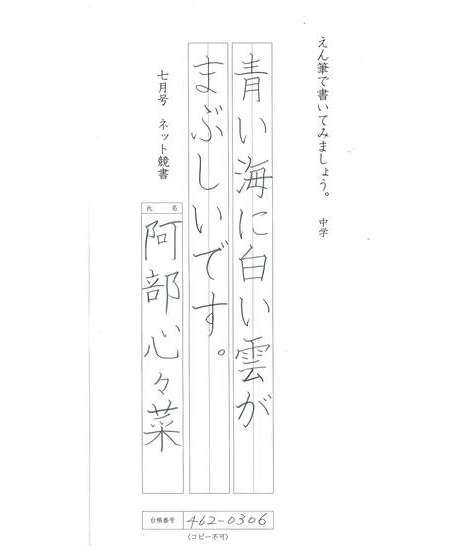 えん筆で書いてみましょう。 中学
青い海に白い雲が
まぶしいです。
七月号 ネット競書
氏 名
阿部心々菜
台帳番号 462-0306
(コピー不可)